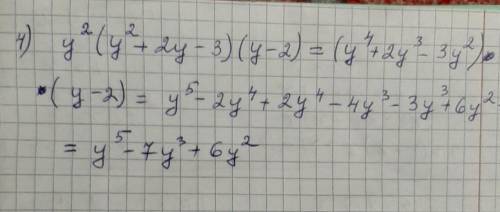 4) y²(y²+2y-3)(y-2)=(y⁴+2y³-3y²)•
•(y-2)= y⁵-2y⁴+2y⁴-4y³-3y³+6y²
= y⁵-7y³+6y²